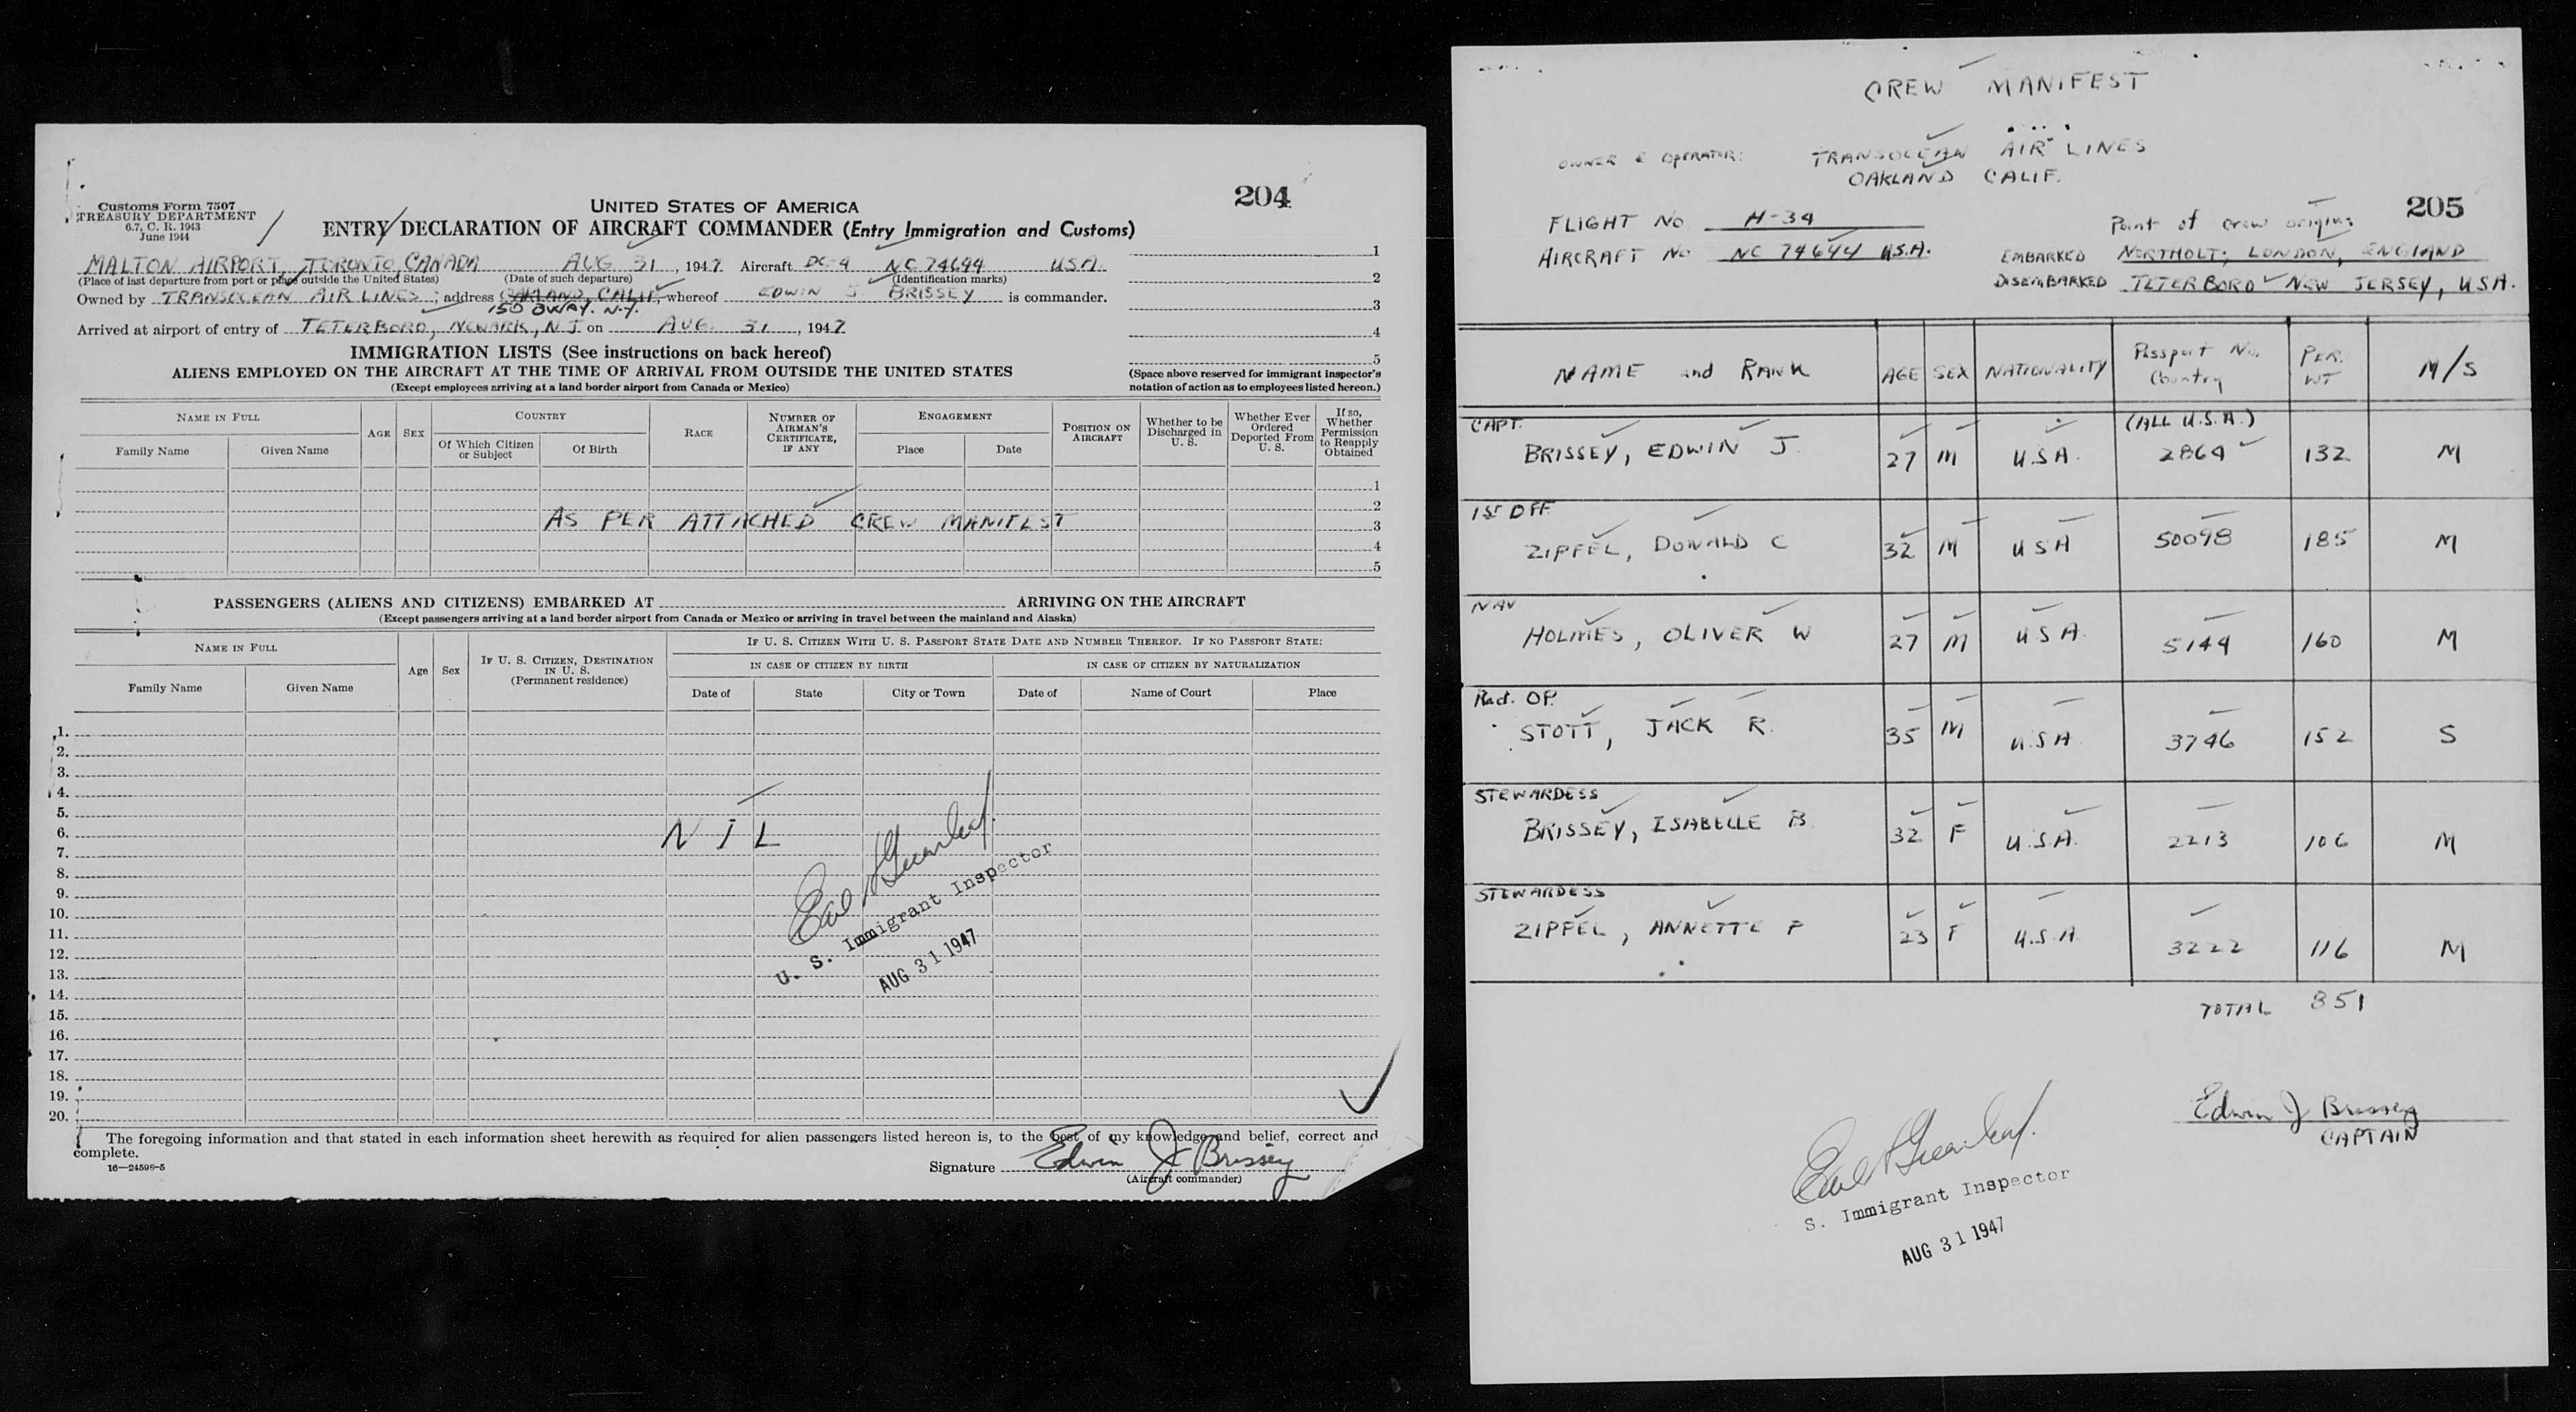 204
Customs Form 7507
TREASURY DEPARTMENT
6.7, C. R. 1943
June 1944
UNITED STATES OF AMERICA
ENTRY DECLARATION OF AIRCRAFT COMMANDER (Entry Immigration and Customs)
MALTON AIRPORT, TORONTO, CANADA AUG 31, 1947. Aircraft DC-4 NC 74644 USA.
(Place of last departure from port or place outside the United States) (Date of such departure) (Identification marks)
Owned by TRANSOCEAN AIR LINES; address OAKLAND, CALIF, whereof EDWIN J. BRISSEY is commander.
150 BWAY. N.Y.
Arrived at airport of entry of TETERBORO, NEWARK, N.J. on AUG. 31, 1947
1
2
3
4
5
(Space above reserved for immigrant inspector's
notation of action as to employees listed hereon.)
IMMIGRATION LISTS (See instructions on back hereof)
ALIENS EMPLOYED ON THE AIRCRAFT AT THE TIME OF ARRIVAL FROM OUTSIDE THE UNITED STATES
(Except employees arriving at a land border airport from Canada or Mexico)
NAME IN FULL
Family Name Given Name
AGE SEX
COUNTRY
Of Which Citizen or Subject Of Birth
RACE
NUMBER OF AIRMAN'S CERTIFICATE, IF ANY
ENGAGEMENT
Place Date
POSITION ON AIRCRAFT
Whether to be Discharged in U. S.
Whether Ever Ordered Deported From U. S.
If so, Whether Permission to Reapply Obtained
1
2
AS PER ATTACHED CREW MANIFEST 3
4
5
PASSENGERS (ALIENS AND CITIZENS) EMBARKED AT ARRIVING ON THE AIRCRAFT
(Except passengers arriving at a land border airport from Canada or Mexico or arriving in travel between the mainland and Alaska)
NAME IN FULL
Family Name Given Name
Age Sex
IF U. S. CITIZEN, DESTINATION IN U. S.
(Permanent residence)
IF U. S. CITIZEN WITH U. S. PASSPORT STATE DATE AND NUMBER THEREOF. IF NO PASSPORT STATE:
IN CASE OF CITIZEN BY BIRTH IN CASE OF CITIZEN BY NATURALIZATION
Date of State City or Town Date of Name of Court Place
1.
2.
3.
4.
5.
6. NIL
7.
8.
9.
10.
11.
12.
13.
14.
15.
16.
17.
18.
19.
20.
Earl Greenleaf.
U. S. Immigrant Inspector
AUG 31 1947
The foregoing information and that stated in each information sheet herewith as required for alien passengers listed hereon is, to the best of my knowledge and belief, correct and
complete.
16—24598-5
Signature Edwin J Brissey
(Aircraft commander)
CREW MANIFEST
OWNER & OPERATOR: TRANSOCEAN AIR LINES
OAKLAND CALIF.
205
FLIGHT NO H-34
AIRCRAFT NO NC 74644 U.S.A.
Point of crew origin:
EMBARKED NORTHOLT; LONDON, ENGLAND
DISEMBARKED TETERBORO NEW JERSEY, USA.
NAME and RANK AGE SEX NATIONALITY Passport No. Country PER. WT M/S
(ALL U.S.A.)
CAPT.
BRISSEY, EDWIN J. 27 M U.S.A. 2864 132 M
1ST OFF
ZIPFEL, DONALD C 32 M USA 50098 185 M
NAV
HOLMES, OLIVER W 27 M USA. 5144 160 M
Rad. OP.
STOTT, JACK R. 35 M U.S.A 3746 152 S
STEWARDESS
BRISSEY, ISABELLE B 32 F U.S.A. 2213 106 M
STEWARDESS
ZIPFEL, ANNETTE F 23 F U.S.A 3222 116 M
TOTAL 851
Edwin J Brissey
CAPTAIN
Earl Greenleaf.
S. Immigrant Inspector
AUG 31 1947